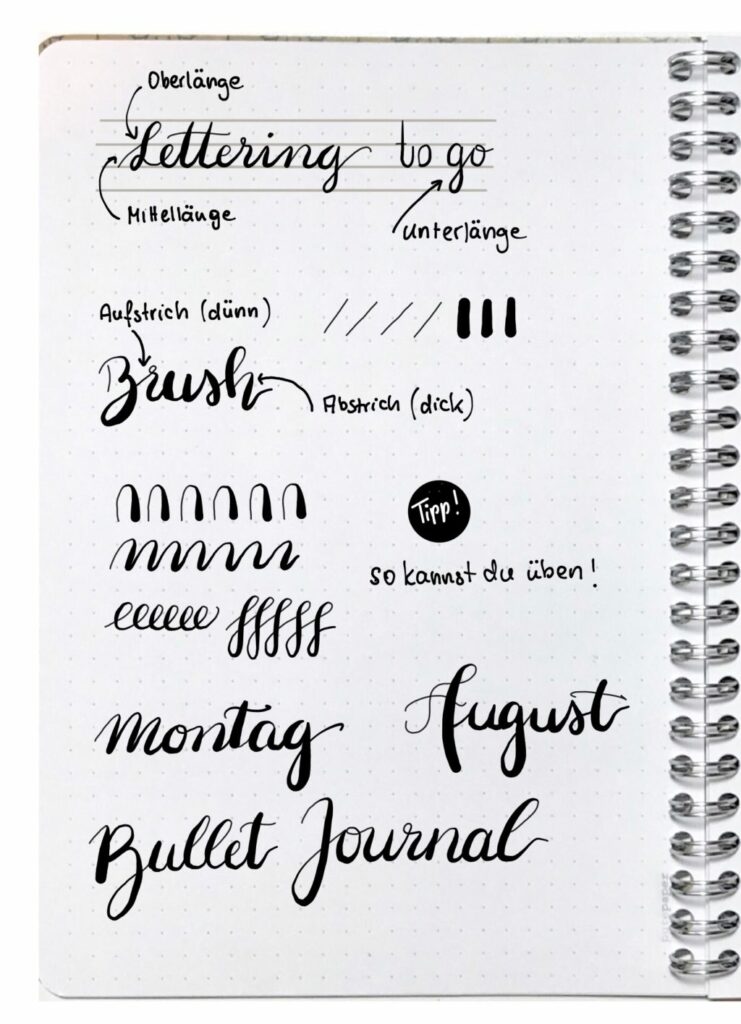 Oberlänge
Lettering to go
Mittellänge
Unterlänge
Aufstrich (dünn)
Brush
Abstrich (dick)
Tipp!
so kannst du üben!
eeeeee fffff
Montag
August
Bullet Journal